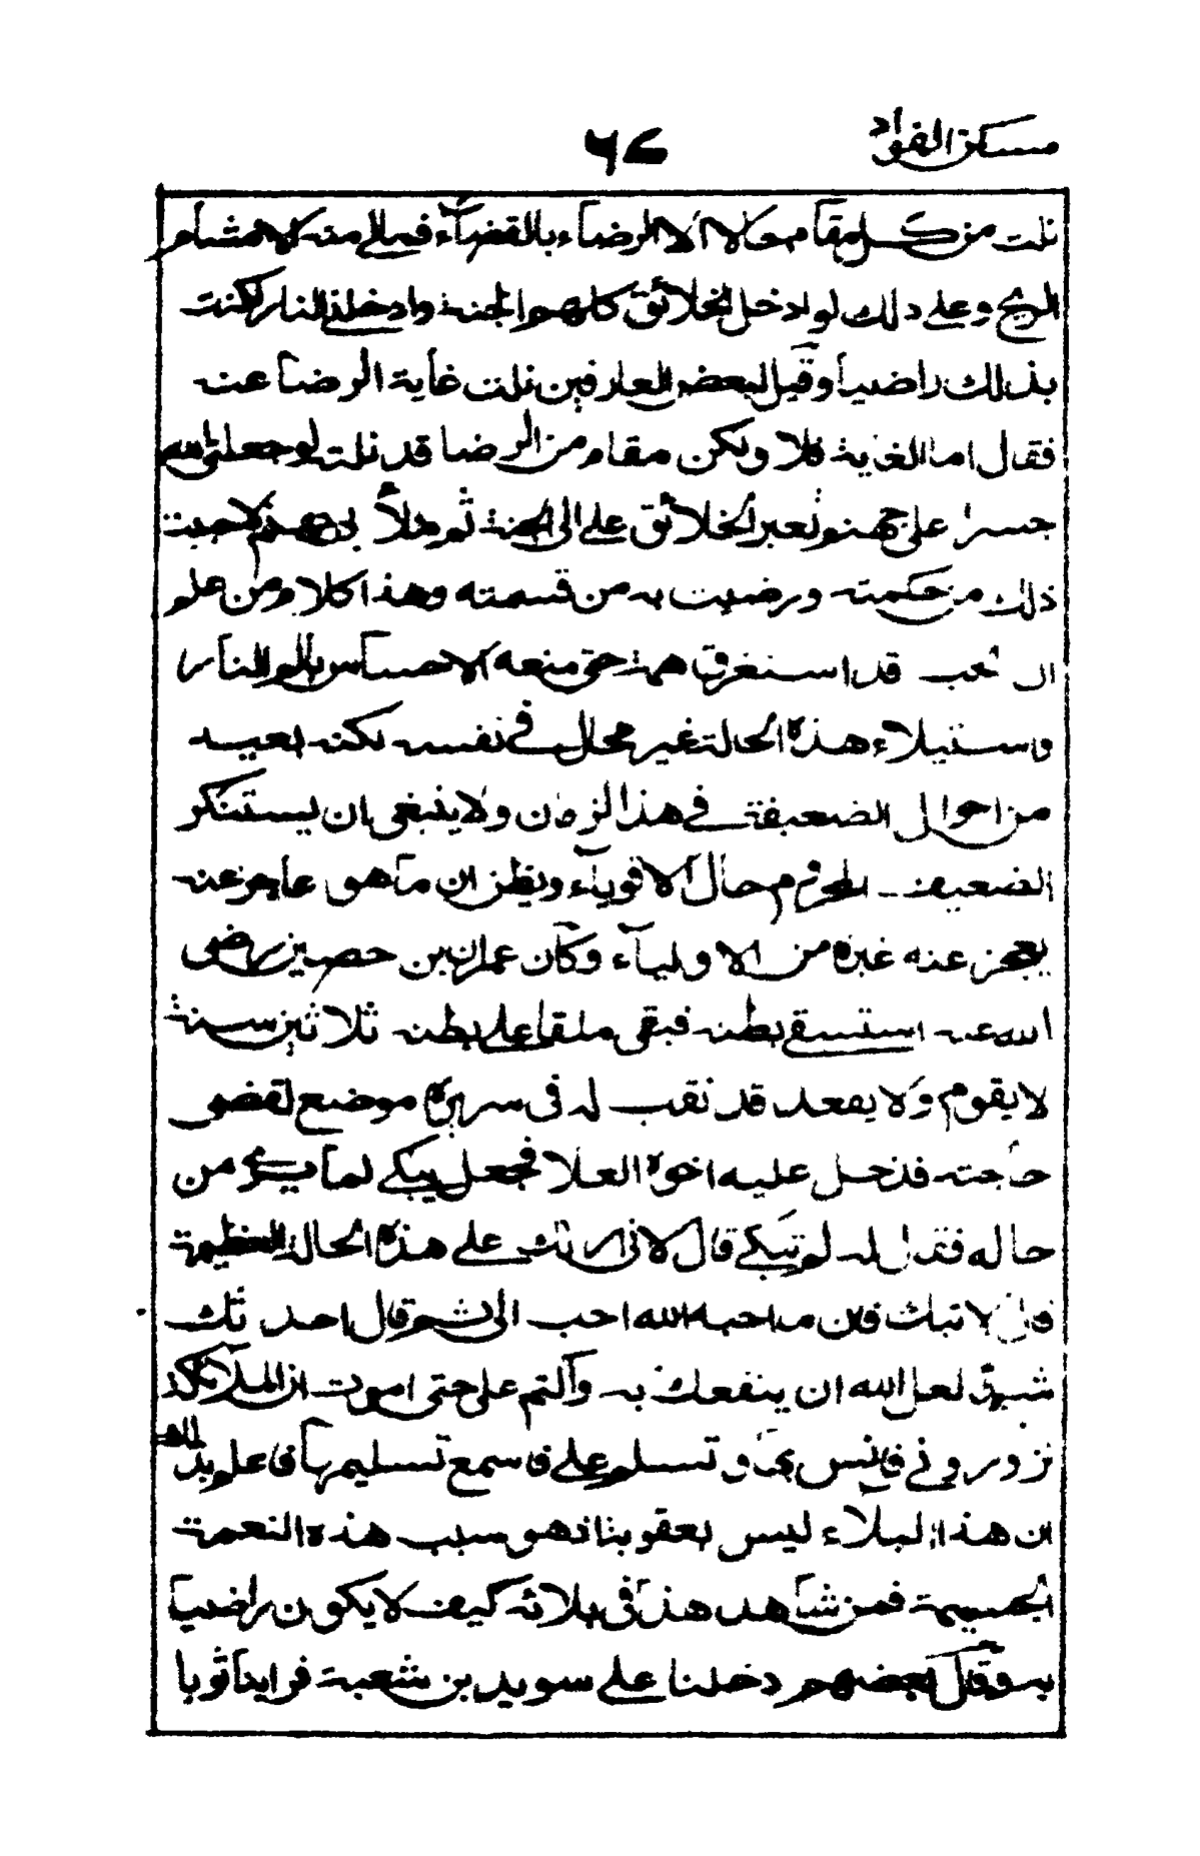 مسكن الفؤاد ٦٧
نلت من كل مقام حالا الا الرضاء بالقضآء فمالي منه الا مشام
الريح وعلى ذلك لو ادخل الخلائق كلهم الجنة وادخلني النار لكنت
بذلك راضيا وقيل لبعض العارفين نلت غاية الرضا عنه
فقال اما الغاية فلا ولكن مقام من الرضا قد نلت لو جعلني الله
جسرا على جهنم وتعبر الخلائق علي الى الجنة ثم ملأ بي جهنم لاحببت
ذلك من حكمته ورضيت به من قسمته وهذا كلام من علم
ان الحب قد استغرق همه حتى منعه الاحساس بالم النار
واستيلاء هذه الحالة غير محال في نفسه لكنه بعيد
من احوال الضعيفة في هذا الزمان ولا ينبغي ان يستنكر
الضعيف المحروم حال الاقوياء ويظن ان ما هو عاجز عنه
يعجز عنه غيره من الاولياء وكان عمران بن حصين رضى
الله عنه استسقى بطنه فبقى ملقا على بطنه ثلاثين سنة
لا يقوم ولا يقعد قد نقب له في سريره موضع لقضاء
حاجته فدخل عليه اخوه العلا فجعل يبكي لما يرى من
حاله فقال له لم تبكي قال لاني اراك على هذه الحالة العظيمة
قال لا تبك فان ما احبه الله احب الي ثم قال احدثك
شيئا لعل الله ان ينفعك به واكتم علي حتى اموت ان الملائكة
تزورونى فانس بها وتسلم علي فاسمع تسليمها فاعلم بذلك
ان هذا البلاء ليس بعقوبة اذ هو سبب هذه النعمة
الجسيمة فمن شاهد هذا في بلائه كيف لا يكون راضيا
به وقال بعضهم دخلنا على سويد بن شعبة فراينا ثوبا